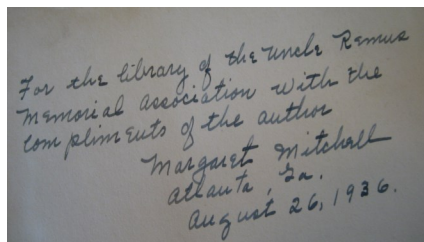 For the library of the Uncle Remus
Memorial Association with the
compliments of the author
Margaret Mitchell
Atlanta, Ga.
August 26, 1936.